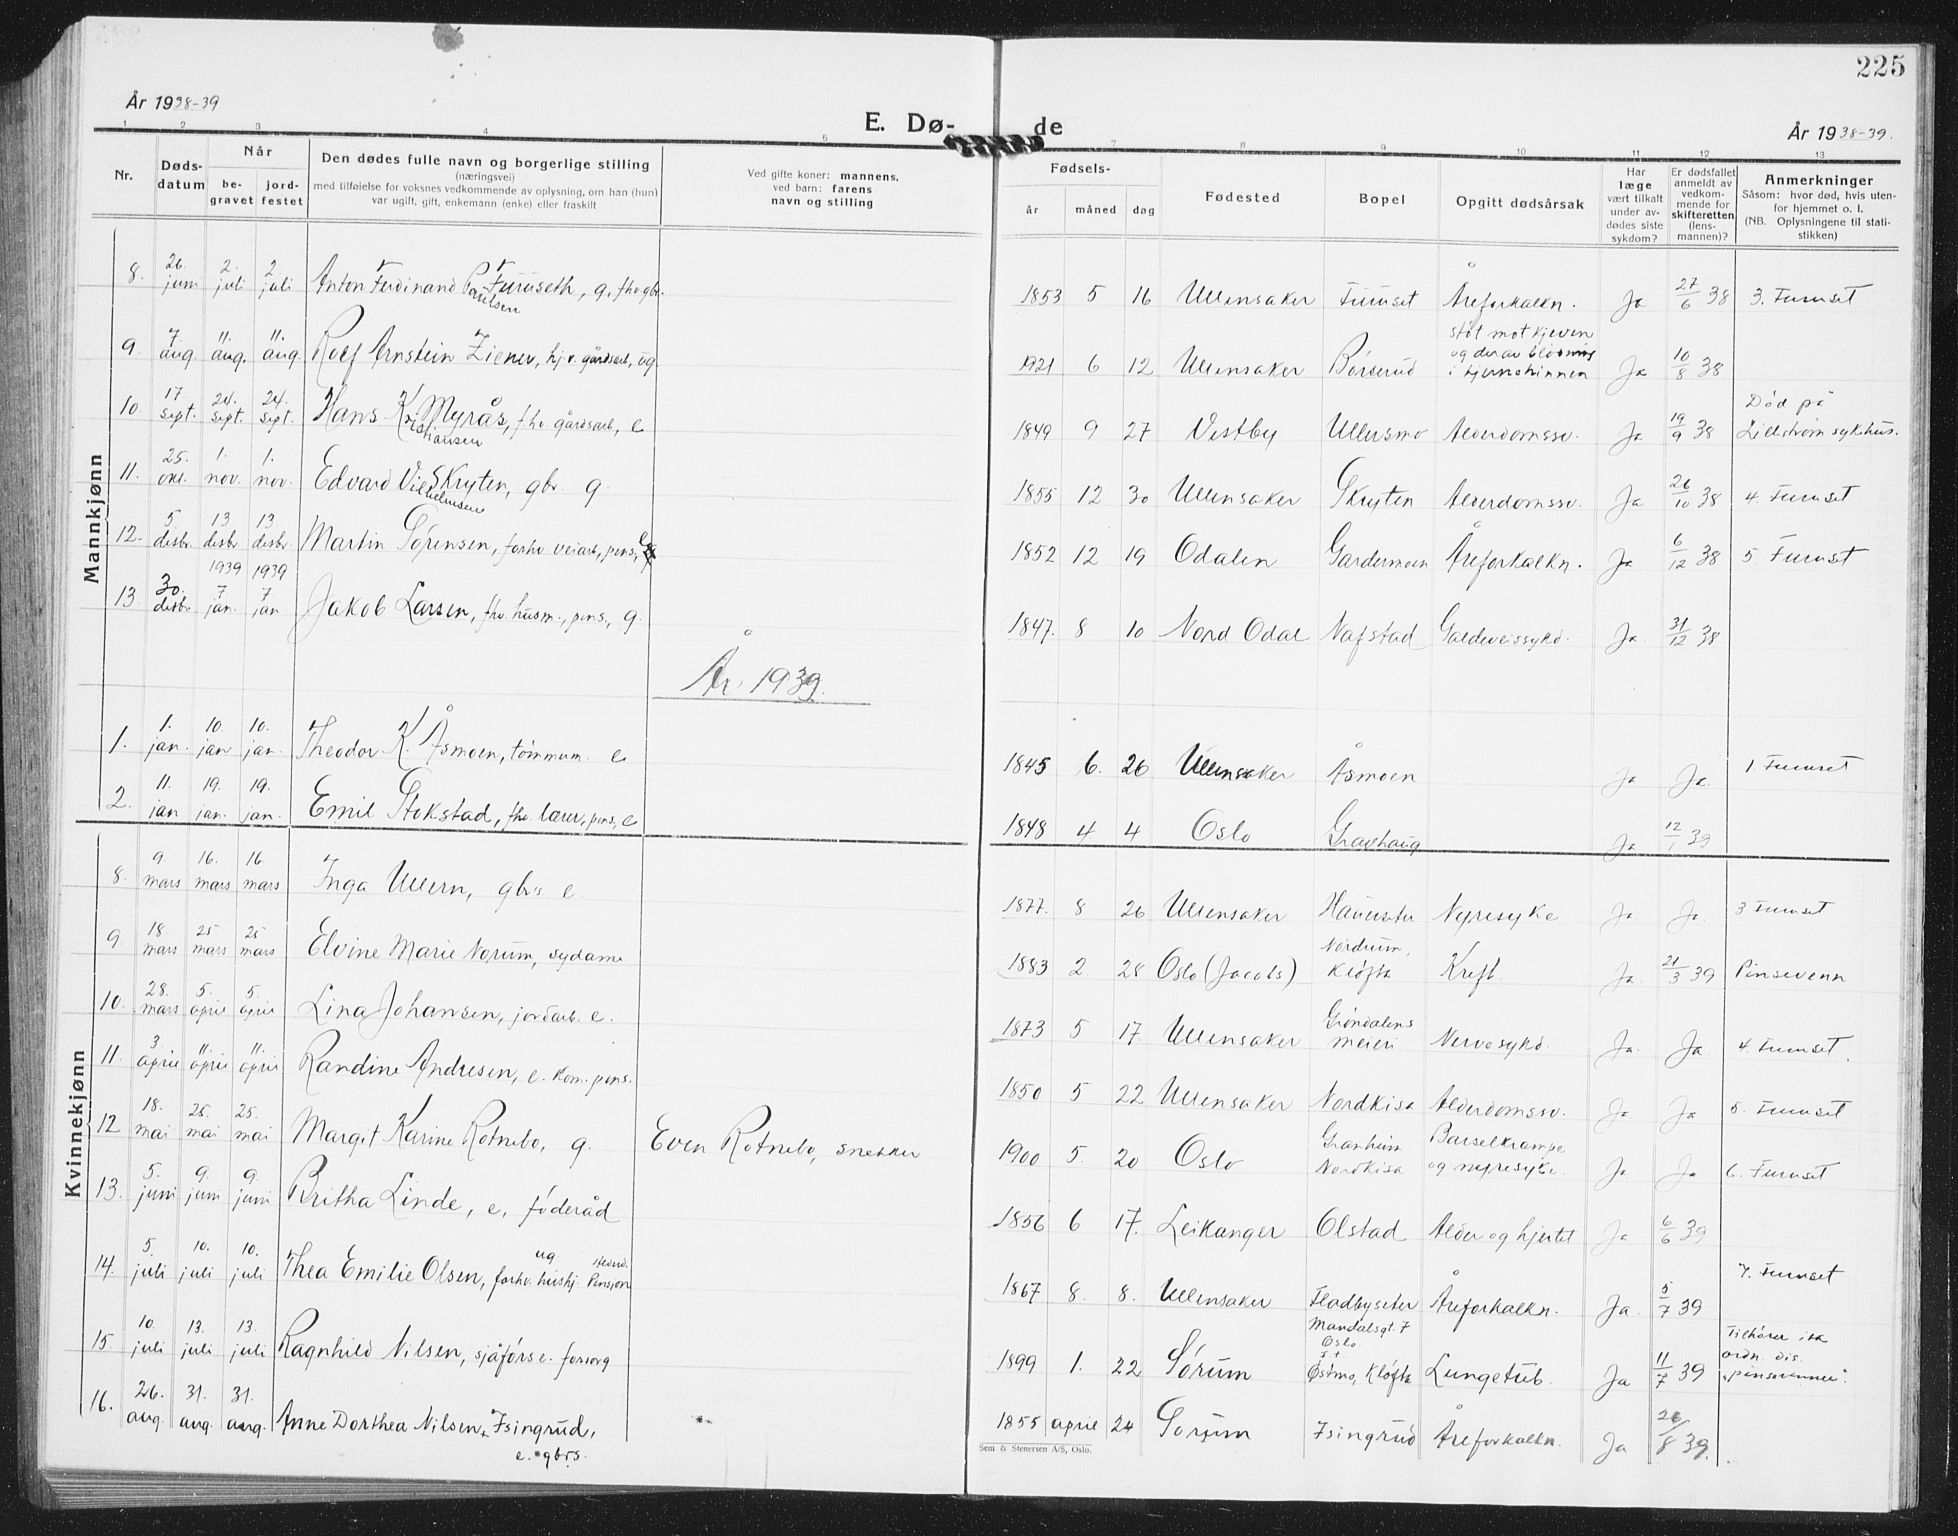 225
År 1938-39
E. Dø- de
År 1938-39.
1 2 3 4 5 7 8 9 10 11 12 13
Nr.
Døds-
datum
Når
be-
gravet
jord-
festet
Den dødes fulle navn og borgerlige stilling
(næringsvei)
med tilføielse for voksnes vedkommende av oplysning, om han (hun)
var ugift, gift, enkemann (enke) eller fraskilt
Ved gifte koner: mannens,
ved barn: farens
navn og stilling
Fødsels-
år måned dag
Fødested
Bopel
Opgitt dødsårsak
Har
læge
vært tilkalt
under av-
dødes siste
sykdom?
Er dødsfallet
anmeldt av
vedkom-
mende for
skifteretten
(lens-
mannen)?
Anmerkninger
Såsom: hvor død, hvis uten-
for hjemmet o. l.
(NB. Oplysningene til stati-
stikken)
Mannkjønn
8. 26. juni 2. juli 2 juli Anton Ferdinand Paulsen Furuseth, g. fhv. gbr. 1853 5 16 Ullensaker Furuset Åreforkalkn. Ja 27/6 38 3. Furuset
9 7 aug. 11. aug. 11. aug. Rolf Arnstein Ziener, hj.v. gårdsarb, ug 1921 6 12 Ullensaker Børserud støt mot kjeven
og derav blødning
i hjernehinnen Ja 10/8 38
10 17 sept. 24. sept. 24. sept. Hans Kristiansen Myrås, fhv. gårdsarb, e 1849 9 27 Vestby Ullersmo Alderdomssv. Ja 19/9 38 Død på
Lillestrøm sykehus.
11. 25. okt. 1. nov. 1. nov. Edvard Vilhelmsen Skryten, gbr. g. 1855 12 30 Ullensaker Skryten Alderdomssv. Ja 26/10 38 4. Furuset
12. 5 desbr. 13 desbr. 13 desbr. Martin Sørensen, forhv. veiarb, pens, 1852 12 19 Odalen Gardermoen Åreforkalkn. Ja 6/12 38 5. Furuset
13 30. desbr. 1939 7 jan. 1939 7 jan Jakob Larsen, fhv. husm., pens., g. 1847. 8 10 Nord Odal Nafstad Galdeveissykd. Ja 31/12 38
År 1939.
1. 1. jan. 10. jan 10. jan. Theodor K. Åsmoen, tømmerm. e 1845 6. 26 Ullensaker Åsmoen Ja Ja. 1. Furuset
2. 11. jan 19. jan. 19. jan. Emil Stokstad, fhv. lærer, pens, e 1848 4 4 Oslo Gravhaug Ja 12/1 39
Kvinnekjønn
8. 9. mars 16. mars 16. mars Inga Ullern, gbr.s e. 1877. 8 26 Ullensaker Hauerseter Nyresyke Ja. Ja. 3 Furuset
9. 18. mars 25 mars 25 mars Elvine Marie Norum, sydame 1883 2. 28 Oslo (Jacobs) Nordrum,
Kløfta Kreft. Ja. 21/3 39 Pinsevenn
10. 28. mars 5. april 5. april Lina Johansen, jordarb. e. 1873 5 17. Ullensaker Grøndalens
meieri Nervesykd. Ja. Ja. 4. Furuset.
11. 3. april 11. april 11. april Randine Andresen, e. kom. pens. 1850 5 22 Ullensaker Nordkisa Alderdomssv. Ja Ja 5. Furuset
12 18. mai 25. mai 25. mai Margit Karine Rotnebo, g. Even Rotnebo, snekker 1900 5. 20 Oslo Granheim
Nordkisa Barselkrampe
og nyresyke. Ja Ja 6. Furuset
13. 5. juni 9. juni 9. juni Britha Linde, e, føderåd 1856 6 17. Leikanger Olstad Alder og hjertet Ja 6/6 39
14. 5. juli 10. juli 10. juli Thea Emilie Olsen, forhv. hushj. ug. Alderd. Pensjon 1867 8. 8. Ullensaker Fladbyseter Åreforkalkn. Ja. 5/7 39 7. Furuset
15 10. juli 13. juli 13. juli Ragnhild Nilsen, sjåførs e. forsorg 1899 1. 22 Sørum Mandalsgt. 7
Oslo
Østmo, Kløfta Lungetub. Ja 11/7 39 Tilhører ikke
ordn. dis.
"pinsevenner".
16. 26. aug. 31. aug. 31. aug. Anne Dorthea Nilsen, Isingrud,
e. gbrs. 1855 april 24 Sørum Isingrud Åreforkalkn. Ja 26/8 39.
Sem & Stenersen A/S, Oslo.